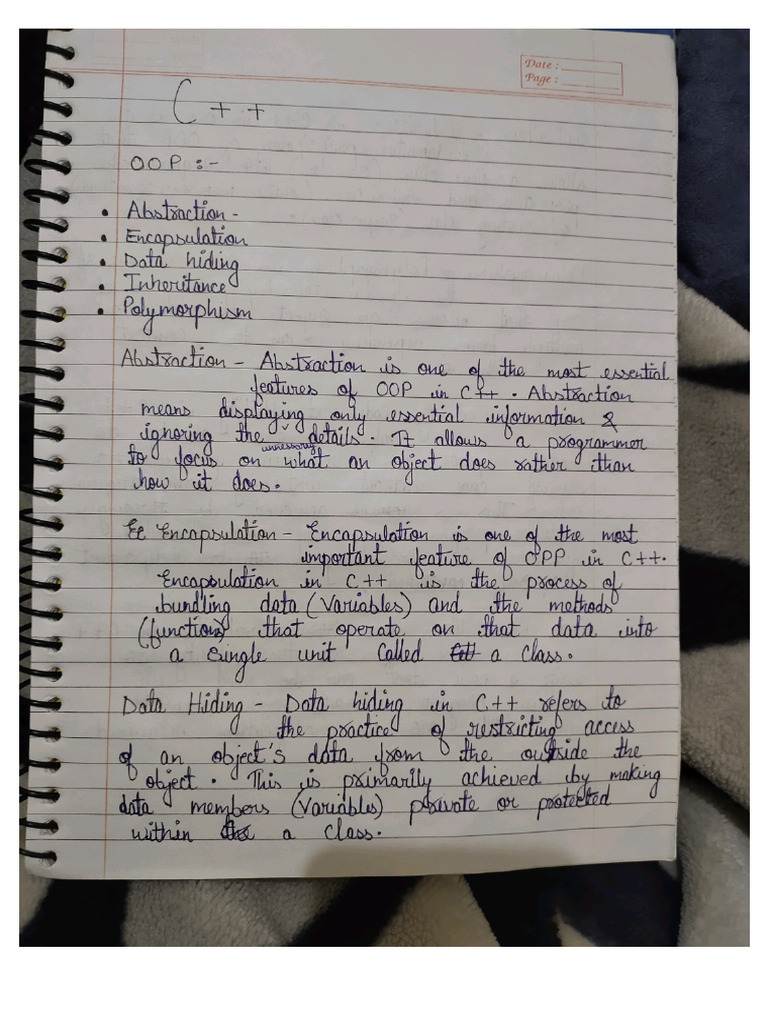 Date :
Page :
C++
OOP :-
• Abstraction -
• Encapsulation
• Data hiding
• Inheritance
• Polymorphism
Abstraction - Abstraction is one of the most essential
features of OOP in C++. Abstraction
means displaying only essential information &
ignoring the unnessary details. It allows a programmer
to focus on what an object does rather than
how it does.
Encapsulation - Encapsulation is one of the most
important feature of OPP in C++.
Encapsulation in C++ is the process of
bundling data (Variables) and the methods
(functions) that operate on that data into
a single unit called a class.
Data Hiding - Data hiding in C++ refers to
the practice of restricting access
of an object's data from the outside the
object. This is primarily achieved by making
data members (Variables) private or protected
within a class.